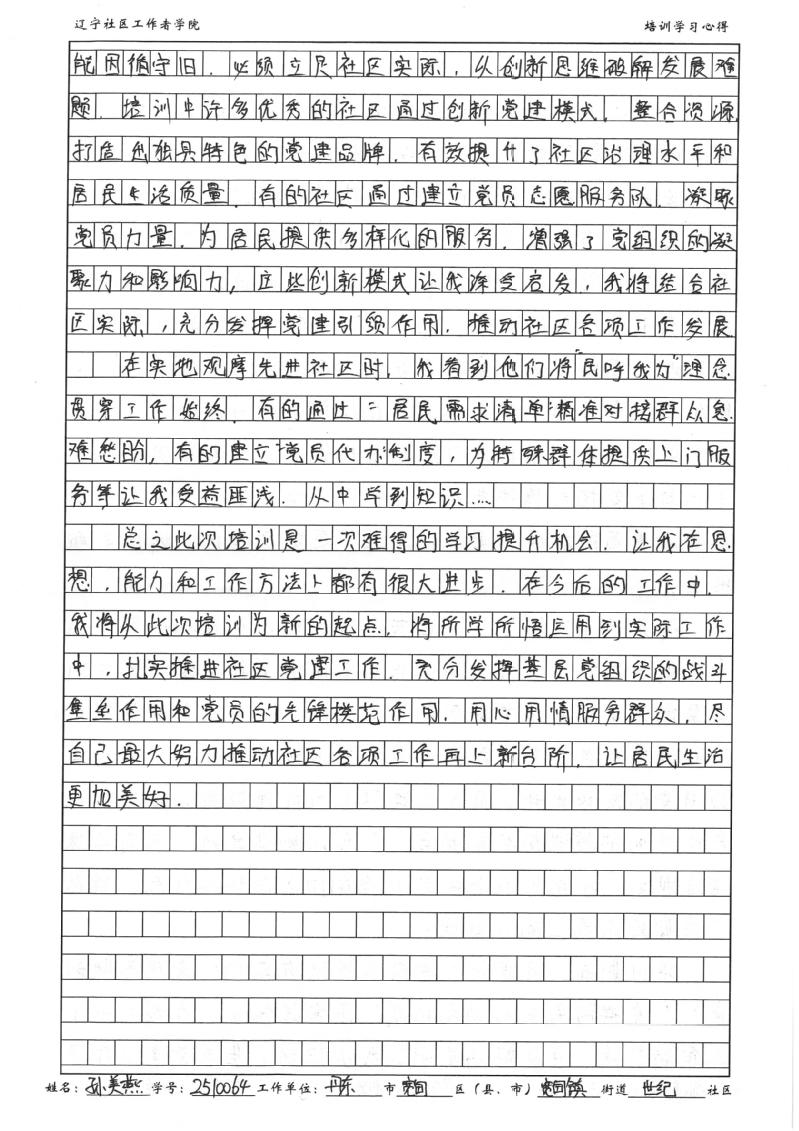 辽宁社区工作者学院 培训学习心得
能因循守旧.必须立足社区实际,从创新思维破解发展难
题.培训中许多优秀的社区通过创新党建模式.整合资源
打造出独具特色的党建品牌.有效提升了社区治理水平和
居民生活质量.有的社区通过建立党员志愿服务队.凝聚
党员力量.为居民提供多样化的服务.增强了党组织的凝
聚力和影响力,这些创新模式让我深受启发,我将结合社
区实际,充分发挥党建引领作用.推动社区各项工作发展
在实地观摩先进社区时.我看到他们将"民呼我为"理念
贯穿工作始终.有的通过"居民需求清单"精准对接群众急
难愁盼,有的建立党员代办制度,为特殊群体提供上门服
务等让我受益匪浅.从中学到知识....
总之此次培训是一次难得的学习提升机会.让我在思
想,能力和工作方法上都有很大进步.在今后的工作中.
我将从此次培训为新的起点.将所学所悟运用到实际工作
中,扎实推进社区党建工作.充分发挥基层党组织的战斗
堡垒作用和党员的先锋模范作用.用心用情服务群众,尽
自己最大努力推动社区各项工作再上新台阶.让居民生活
更加美好.
姓名:孙美燕 学号:2510064 工作单位:丹东 市 宽甸 区(县、市) 宽甸镇 街道 世纪 社区